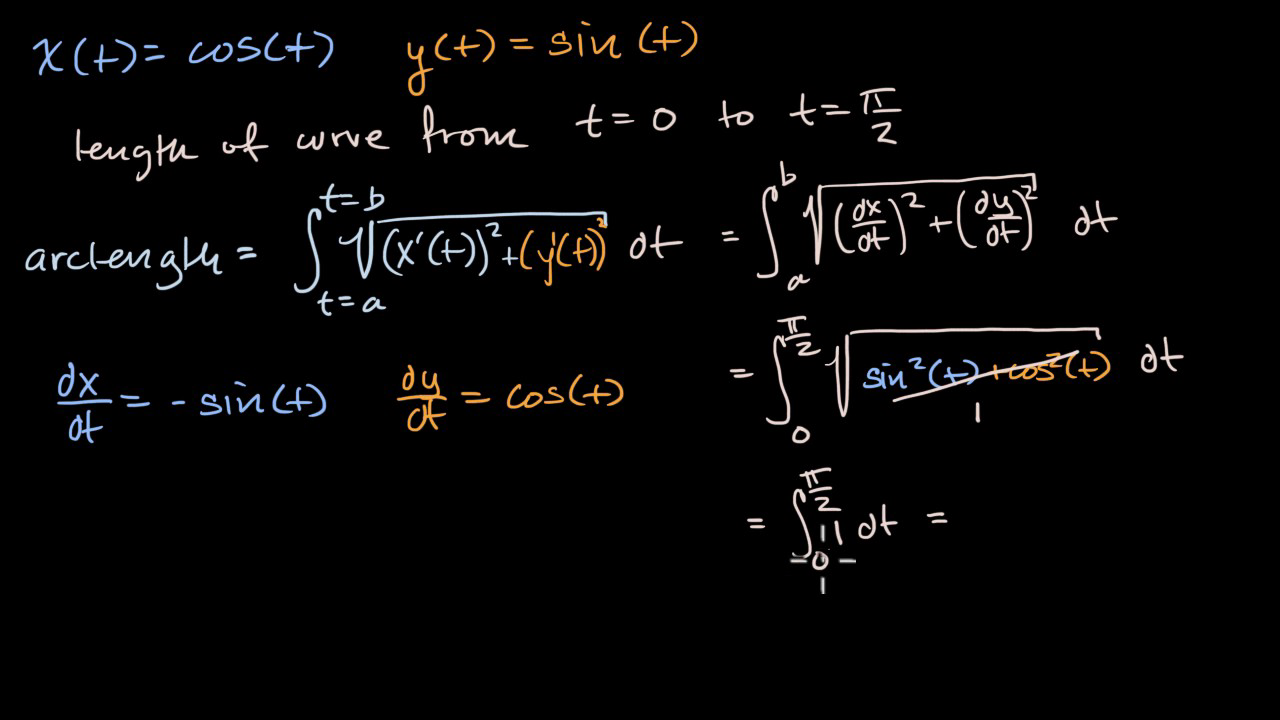 x(t) = cos(t) y(t) = sin(t)
length of curve from t = 0 to t = π/2
arc length = ∫_{t=a}^{t=b} √((x'(t))² + (y'(t))²) dt = ∫_a^b √((dx/dt)² + (dy/dt)²) dt
dx/dt = - sin(t) dy/dt = cos(t)
= ∫_0^{π/2} √(sin²(t) + cos²(t)) dt
1
= ∫_0^{π/2} 1 dt =